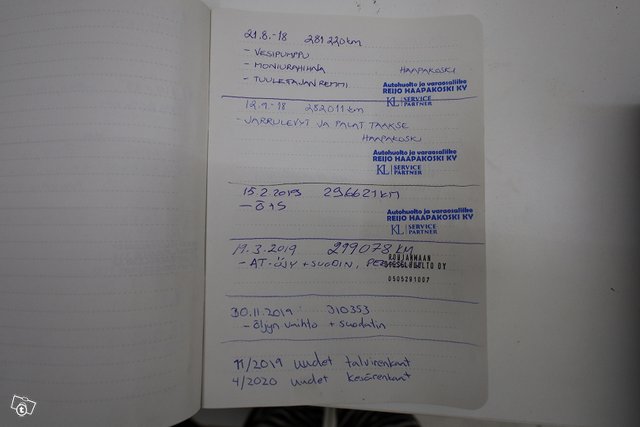 21.8.-18 281220km
- VESIPUMPPU
- MONIURAHIHNA
- TUULETAJAN REMMI
HAAPAKOSKI
Autohuolto ja varaosaliike
REIJO HAAPAKOSKI KY
KL SERVICE PARTNER
12.9.-18 282011km
- JARRULEVYT JA PALAT TAAKSE
HAAPAKOSKI
Autohuolto ja varaosaliike
REIJO HAAPAKOSKI KY
KL SERVICE PARTNER
15.2.2019 296621KM
- Ö+S
Autohuolto ja varaosaliike
REIJO HAAPAKOSKI KY
KL SERVICE PARTNER
19.3.2019 299078 KM
- AT-ÖJY + SUODIN,
POHJANMAAN
DIESELHUOLTO OY
0505291007
30.11.2019 310353
- öljyn vaihto + suodatin
11/2019 uudet talvirenkaat
4/2020 uudet kesärenkaat